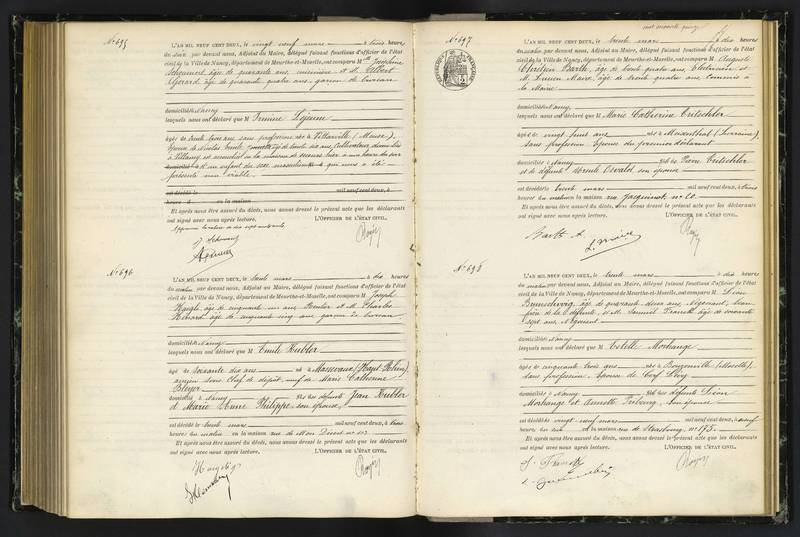 N° 695
L'AN MIL NEUF CENT DEUX, le vingt neuf mars à trois heures
du soir par devant nous, Adjoint au Maire, délégué faisant fonctions d'officier de l'état
civil de la Ville de Nancy, département de Meurthe-et-Moselle, ont comparu M Joséphine
âgé de quarante ans, et M. Albert
âgé de quarante quatre ans, garçon de bureau
domiciliés à Nancy
lesquels nous ont déclaré que M Irmine Lejeune
âgée de trente trois ans sans profession née à (Meuse),
épouse de Nicolas âgé de trente six ans, Cultivateur, domicilié
à est accouchée en la maison de secours hier à heure du soir
d'un enfant du sexe masculin qui nous a été
présenté sans vie
est décédé le mil neuf cent deux, à
heure d en la maison
Et après nous être assuré du décès, nous avons dressé le présent acte que les déclarants
ont signé avec nous après lecture. L'OFFICIER DE L'ÉTAT CIVIL,
N° 696
L'AN MIL NEUF CENT DEUX, le trente mars à dix heures
du matin par devant nous, Adjoint au Maire, délégué faisant fonctions d'officier de l'état
civil de la Ville de Nancy, département de Meurthe-et-Moselle, ont comparu M Joseph
âgé de cinquante un ans Rentier et M. Charles
âgé de cinquante cinq ans garçon de bureau
domiciliés à Nancy
lesquels nous ont déclaré que M Emile Hubler
âgé de soixante dix ans né à Massevaux (Haut Rhin),
ancien sous Chef de dépôt, veuf de Marie Catherine
Bleyer
domicilié à Nancy fils des défunts Jean Hubler
et Marie Anne Philippe, son épouse,
est décédé le trente mars mil neuf cent deux, à trois
heures du matin en la maison rue de Mon Désert n°
Et après nous être assuré du décès, nous avons dressé le présent acte que les déclarants
ont signé avec nous après lecture. L'OFFICIER DE L'ÉTAT CIVIL,
N° 697
L'AN MIL NEUF CENT DEUX, le trente mars à dix heures
du matin par devant nous, Adjoint au Maire, délégué faisant fonctions d'officier de l'état
civil de la Ville de Nancy, département de Meurthe-et-Moselle, ont comparu M Auguste
Chrétien Barth, âgé de trente quatre ans, Electricien et
M. Lucien Maire, âgé de trente quatre ans Commis à
la Mairie
domiciliés à Nancy
lesquels nous ont déclaré que M Marie Catherine Tritschler
âgée de vingt huit ans née à Meisenthal (Lorraine),
sans profession Epouse du premier déclarant
domiciliée à Nancy fille de Pierre Tritschler
et de défunte Ursule Osvald son épouse
est décédée le trente mars mil neuf cent deux, à trois
heures du matin en la maison rue Jacquinot n° 20
Et après nous être assuré du décès, nous avons dressé le présent acte que les déclarants
ont signé avec nous après lecture. L'OFFICIER DE L'ÉTAT CIVIL,
Barth A.
L. Maire
N° 698
L'AN MIL NEUF CENT DEUX, le trente mars à dix heures
du matin par devant nous, Adjoint au Maire, délégué faisant fonctions d'officier de l'état
civil de la Ville de Nancy, département de Meurthe-et-Moselle, ont comparu M Léon
Brunschvig âgé de quarante deux ans, Négociant, beau
frère de la défunte, et M. Samuel âgé de soixante
sept ans, Négociant
domiciliés à Nancy
lesquels nous ont déclaré que M Estelle Morhange
âgée de cinquante trois ans née à Bouzonville (Moselle),
sans profession, Epouse de Cerf Lévy
domiciliée à Nancy fille des défunts Léon
Morhange et Annette Fribourg, son épouse
est décédée le vingt neuf mars mil neuf cent deux, à neuf
heures du soir en la maison rue de Strasbourg, n° 175
Et après nous être assuré du décès, nous avons dressé le présent acte que les déclarants
ont signé avec nous après lecture. L'OFFICIER DE L'ÉTAT CIVIL,